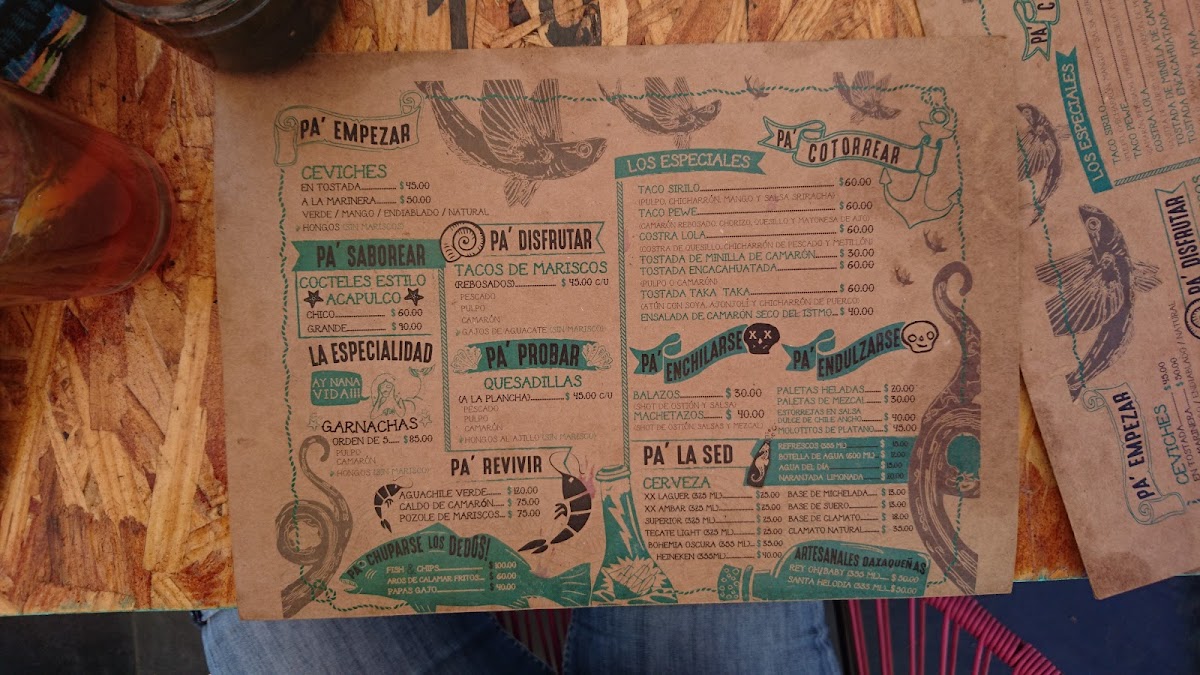 PA' EMPEZAR
CEVICHES
EN TOSTADA $45.00
A LA MARINERA $50.00
VERDE / MANGO / ENDIABLADO / NATURAL
HONGOS (SIN MARISCOS)
PA' SABOREAR
COCTELES ESTILO
ACAPULCO
CHICO $60.00
GRANDE $90.00
LA ESPECIALIDAD
AY NANA
VIDA!!!
GARNACHAS
ORDEN DE 5 $85.00
PULPO
CAMARÓN
HONGOS (SIN MARISCO)
PA' DISFRUTAR
TACOS DE MARISCOS
(REBOSADOS) $45.00 C/U
PESCADO
PULPO
CAMARÓN
GAJOS DE AGUACATE (SIN MARISCO)
PA' PROBAR
QUESADILLAS
(A LA PLANCHA) $45.00 C/U
PESCADO
PULPO
CAMARÓN
HONGOS AL AJILLO (SIN MARISCO)
PA' REVIVIR
AGUACHILE VERDE $120.00
CALDO DE CAMARÓN $75.00
POZOLE DE MARISCOS $75.00
PA' CHUPARSE LOS DEDOS!
FISH & CHIPS $100.00
AROS DE CALAMAR FRITOS $60.00
PAPAS GAJO $40.00
PA' COTORREAR
LOS ESPECIALES
TACO SIRILO $60.00
(PULPO, CHICHARRÓN, MANGO Y SALSA SRIRACHA)
TACO PEWE $60.00
(CAMARÓN REBOSADO, CHORIZO, QUESILLO Y MAYONESA DE AJO)
COSTRA LOLA $60.00
(COSTRA DE QUESILLO, CHICHARRÓN DE PESCADO Y METILLÓN)
TOSTADA DE MINILLA DE CAMARÓN $30.00
TOSTADA ENCACAHUATADA $60.00
(PULPO O CAMARÓN)
TOSTADA TAKA TAKA $60.00
(ATÚN CON SOYA, AJONJOLÍ Y CHICHARRÓN DE PUERCO)
ENSALADA DE CAMARÓN SECO DEL ISTMO $40.00
PA' ENCHILARSE
BALAZOS $30.00
(SHOT DE OSTIÓN Y SALSA)
MACHETAZOS $40.00
(SHOT DE OSTIÓN, SALSAS Y MEZCAL)
PA' ENDULZARSE
PALETAS HELADAS $20.00
PALETAS DE MEZCAL $30.00
ESTORREJITAS EN SALSA
DULCE DE CHILE ANCHO $40.00
MOLOTITOS DE PLATANO $45.00
PA' LA SED
REFRESCOS (355 ML)
BOTELLA DE AGUA (600 ML)
AGUA DEL DÍA
NARANJADA LIMONADA
CERVEZA
XX LAGUER (325 ML) $25.00
XX AMBAR (325 ML) $25.00
SUPERIOR (325 ML) $25.00
TECATE LIGHT (325 ML) $25.00
BOHEMIA OSCURA (355 ML) $35.00
HEINEKEN (355ML) $40.00
BASE DE MICHELADA $15.00
BASE DE SUERO $15.00
BASE DE CLAMATO $18.00
CLAMATO NATURAL $35.00
ARTESANALES OAXAQUEÑAS
REY OH!BABY (355 ML) $50.00
SANTA HELODIA (355 ML) $50.00
LOS ESPECIALES
TACO SIRILO
TACO PEWE
COSTRA LOLA
TOSTADA DE MINILLA DE CAMA
TOSTADA ENCACAHUATADA
PA' DISFRUTAR
PA' EMPEZAR
CEVICHES